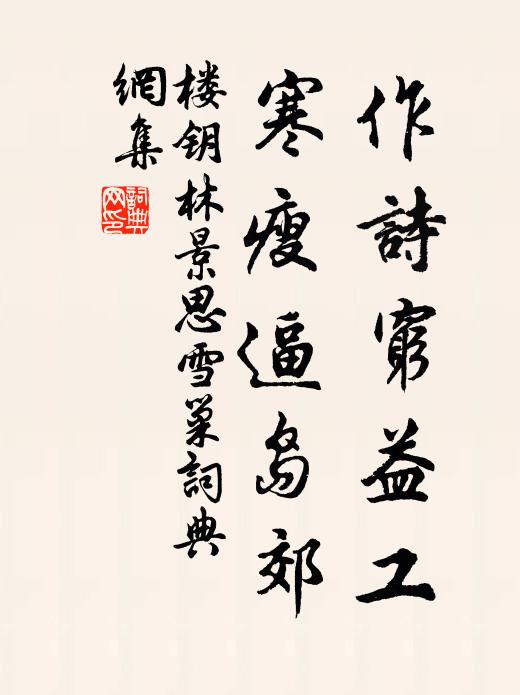 作詩窮益工
寒瘦逼島郊
楼钥林景思雪巢詞典
網集
詞典
网印